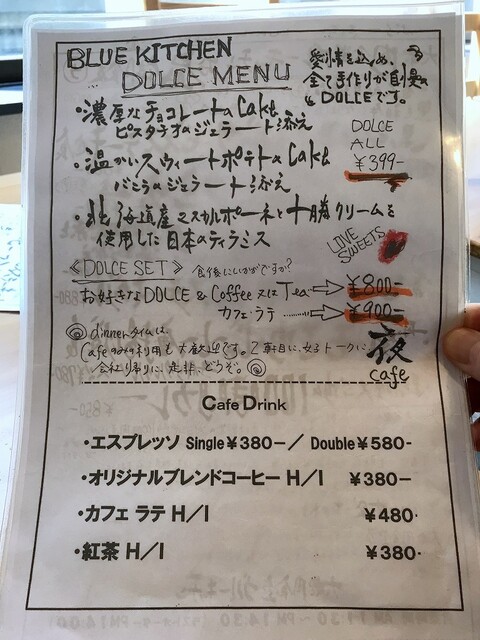 BLUE KITCHEN
DOLCE MENU
愛情を込め、
全て手作りが自慢の
DOLCEです。
・濃厚なチョコレートのCake
ピスタチオのジェラート添え
DOLCE
ALL
¥399-
・温かいスウィートポテトのCake
バニラのジェラート添え
・北海道産マスカルポーネと十勝クリームを
使用した日本のティラミス
LOVE
SWEETS
《DOLCE SET》 食後にいかがですか?
お好きなDOLCE & Coffee 又は Tea ⇨ ¥800-
カフェ・ラテ ⇨ ¥900-
◎dinnerタイムは、
Cafeのみの利用も大歓迎です。2軒目に、女子トークに、
会社り帰りに、是非、どうぞ。◎
夜
cafe
Cafe Drink
・エスプレッソ Single¥380-/ Double¥580-
・オリジナルブレンドコーヒー H/I ¥380-
・カフェ ラテ H/I ¥480-
・紅茶 H/I ¥380-